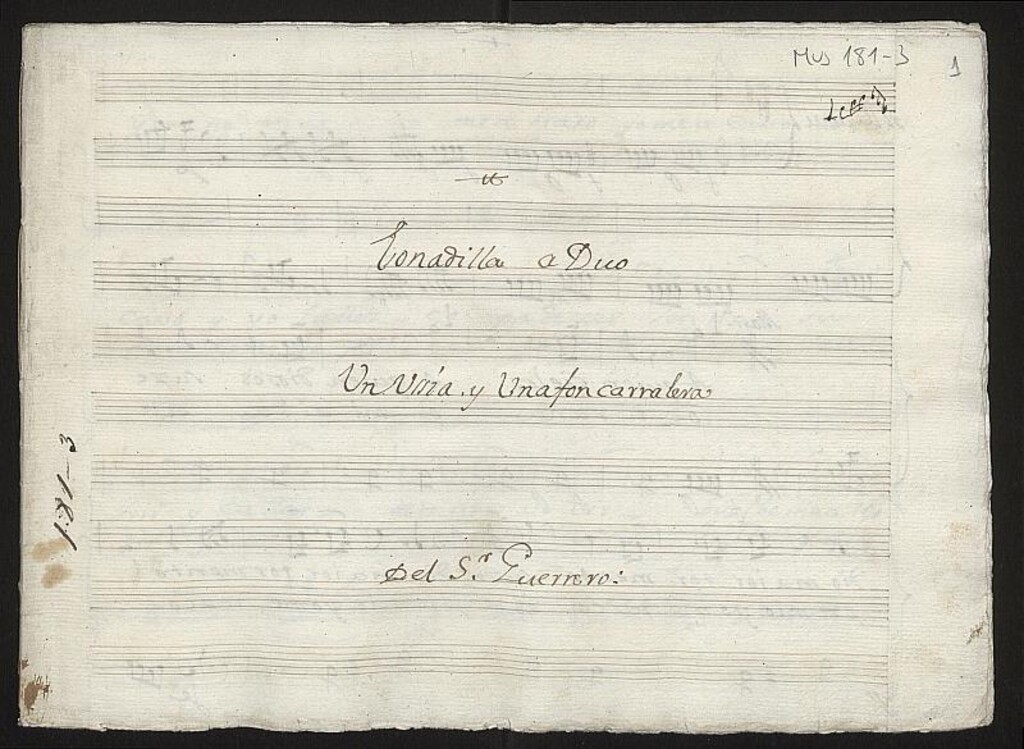 Mus 181-3
1
Tonadilla a Duo
Un Usia. y Una foncarralera
Del S.r Guerrero:
181-3